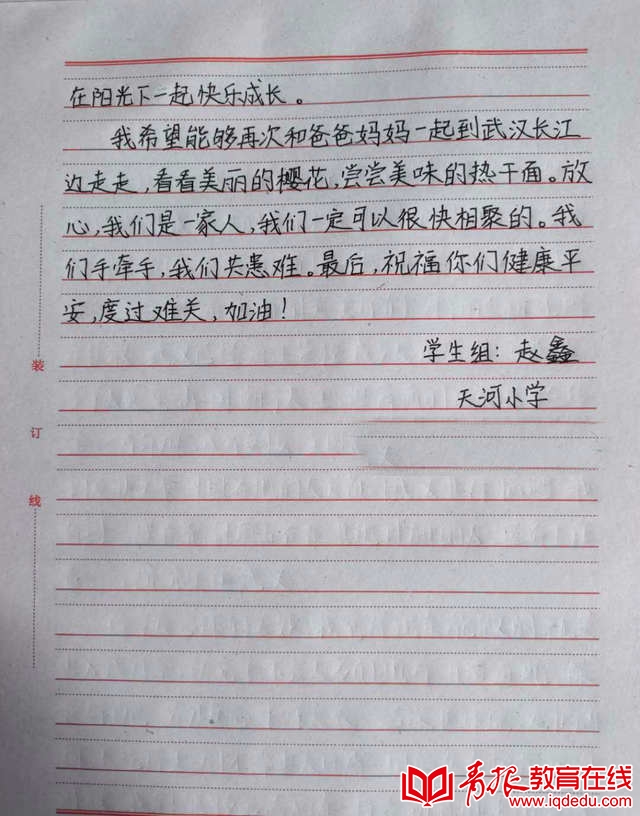 在阳光下一起快乐成长。
我希望能够再次和爸爸妈妈一起到武汉长江
边走走，看看美丽的樱花，尝尝美味的热干面。放
心，我们是一家人，我们一定可以很快相聚的。我
们手牵手，我们共患难。最后，祝福你们健康平
安，度过难关，加油！
学生组：赵鑫
天河小学
装
订
线
青报教育在线
www.iqdedu.com